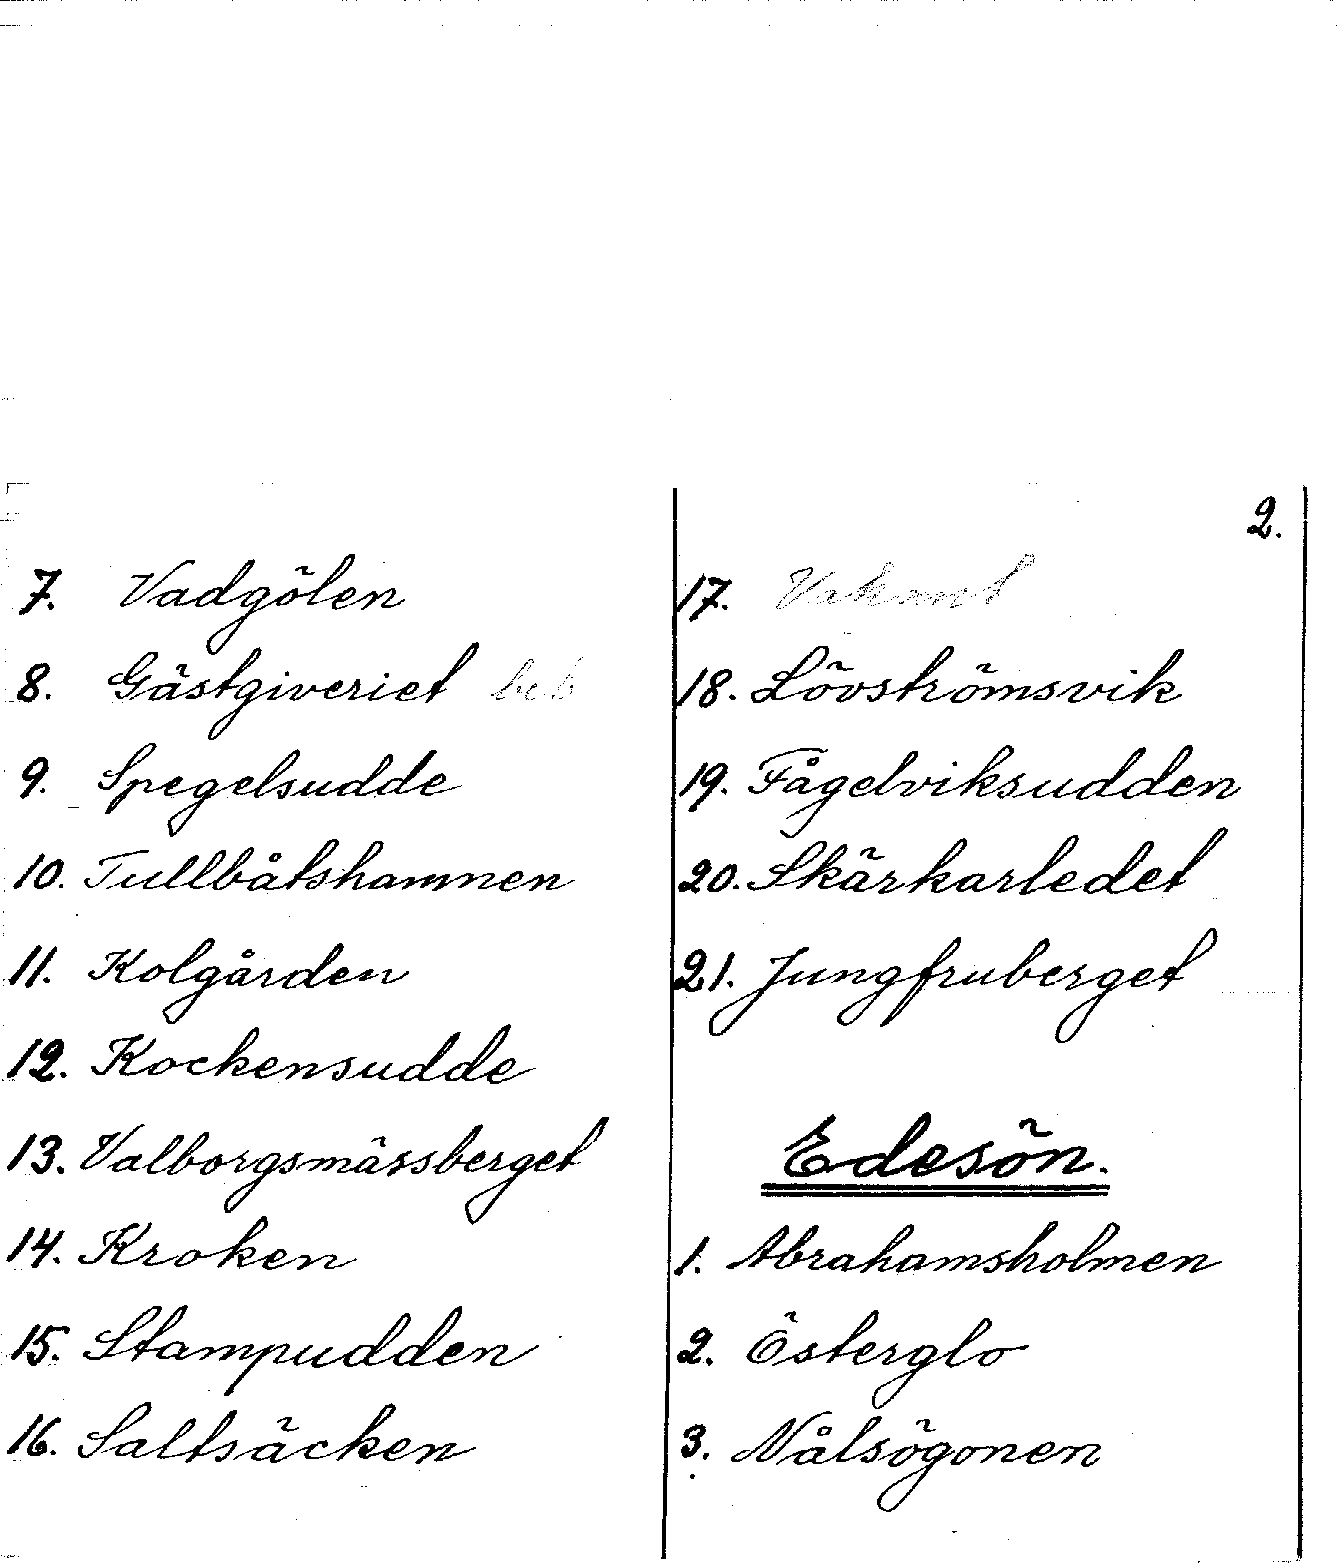 2.
7. Vadgölen
8. Gästgiveriet beb
9. Spegelsudde
10. Tullbåtshamnen
11. Kolgården
12. Kockensudde
13. Valborgsmässberget
14. Kroken
15. Stampudden
16. Saltsäcken
17. Vakant
18. Lövströmsvik
19. Fågelviksudden
20. Skärkarledet
21. Jungfruberget
Edesön.
1. Abrahamsholmen
2. Österglo
3. Nålsögonen